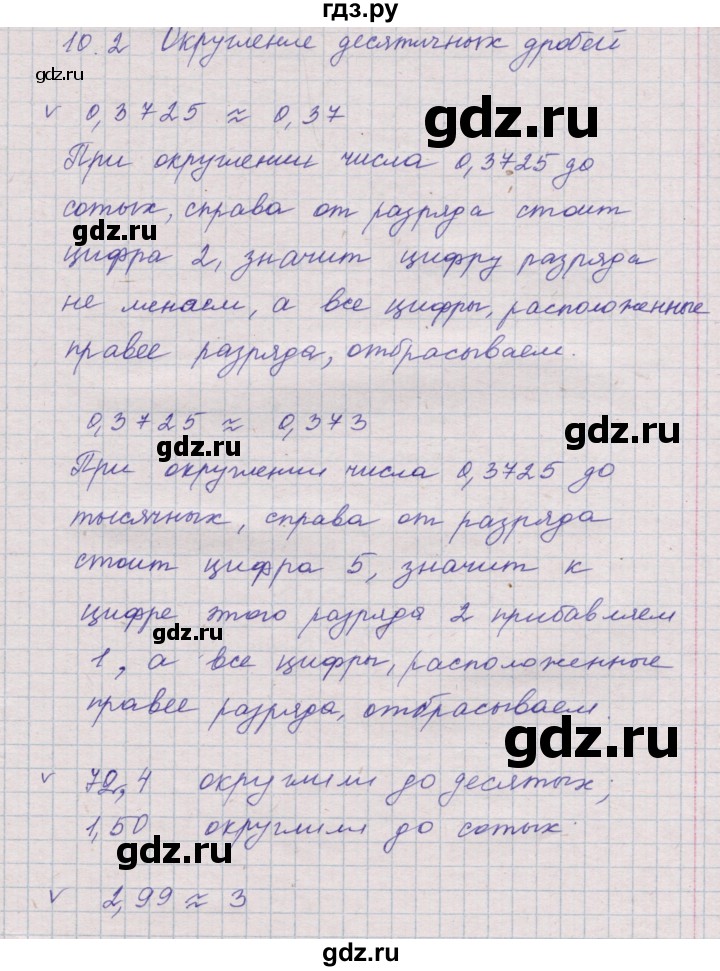 гдз.ру
10.2 Округление десятичных дробей
gdz.ru
v 0,3725 ≈ 0,37
gdz.ru
При округлении числа 0,3725 до
сотых, справа от разряда стоит
gdz.ru
цифра 2, значит цифру разряда
не менаем, а все цифры, расположенные
gdz.ru
правее разряда, отбрасываем.
0,3725 ≈ 0,373
gdz.ru
gdz.ru
При округлении числа 0,3725 до
тысячных, справа от разряда
стоит цифра 5, значит к
цифре этого разряда 2 прибавляем
gdz.ru
1, а все цифры, расположенные
правее разряда, отбрасываем.
gdz.ru
v 72,4 округлили до десятых;
1,50 округлили до сотых.
gdz.ru
v 2,99 ≈ 3
gdz.ru
gdz.ru